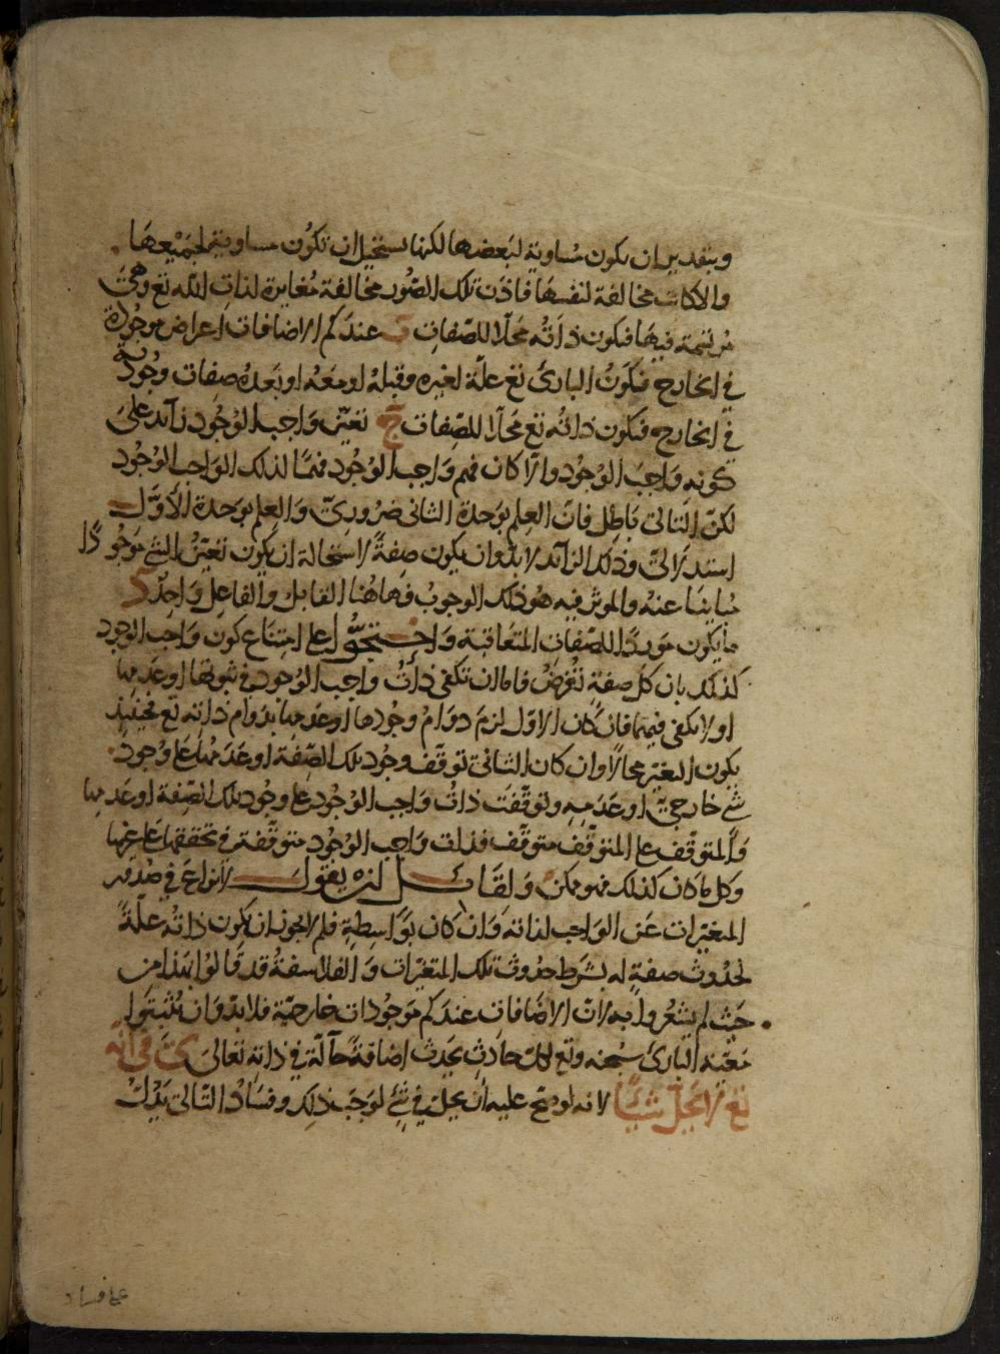 وبتقدير ان يكون مساوية لبعضها لكنها يستحيل ان تكون مساوية لجميعها
والا كانت مخالفة لنفسها فاذن تلك الصور مخالفة مغايرة لذات الله تع وهي
مرتسمة فيها فيكون ذاته محلا للصفات ب عندكم الاضافات اعراض موجودة
في الخارج فيكون البارئ تع علة لغيره وقبله او معه او بعده صفات وجودية
في الخارج فيكون ذاته تع محلا للصفات ج تعين واجب الوجود زائد على
كونه واجب الوجود والا كان فهم واجب الوجود فهما لذلك الواجب الوجود
لكن التالي باطل فان العلم بوحدة الثاني ضروري والعلم بوحدة الاول
استدلالي وذلك الزائد لا بد وان يكون صفة لاستحالة ان يكون تعين الشئ موجودا
مباينا عنه والموثر فيه هو ذلك الوجوب فهاهنا القابل والفاعل واحد
ما يكون موردا للصفات المتعاقبة واحتجوا على امتناع كون واجب الوجود
كذلك بان كل صفة تفرض فاما ان تكفي ذات واجب الوجود في ثبوتها او عدمها
او لا يكفي فيهما فان كان الاول لزم دوام وجودها او عدمها بدوام ذاته تع فحينئذ
يكون التغير محالا وان كان الثاني توقف وجود تلك الصفة او عدمها على وجود
شئ خارجي او عدمه وتوقفت ذات واجب الوجود على وجود تلك الصفة او عدمها
والمتوقف على المتوقف متوقف فذات واجب الوجود متوقفة في تحققها على غيرها
وكل ما كان كذلك فهو ممكن ولقائل ان يقول لا نزاع في صدور
المتغيرات عن الواجب لذاته وان كان بواسطة فلم لا يجوز ان يكون ذاته علة
لحدوث صفة له بشرط حدوث تلك المتغيرات والفلاسفة قد قالوا بهذا من
حيث لم يشعروا به لان الاضافات عندكم موجودات خارجية فلا بد وان يثبتوا
معية البارئ سبحنه وتع لكل حادث يحدث اضافة حالة في ذاته تعالى في انه
تع لا يحل شيئا لانه لو صح عليه ان يحل في شئ لوجب ذلك وفساد التالي يدل
على فساد